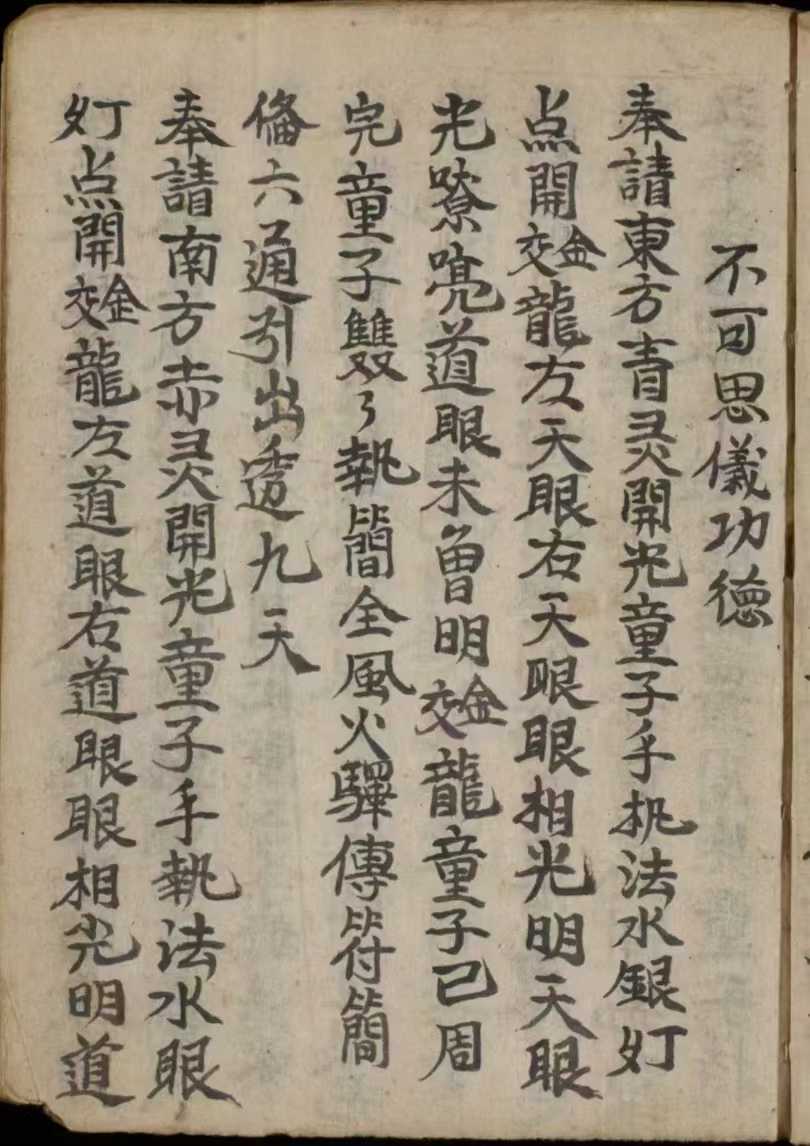 不可思儀功德
奉請東方青灵開光童子手执法水銀灯
点開金蛟龍左天眼右天眼眼相光明天眼
光嘹喨道眼未曾明金蛟龍童子已周
完童子雙々執簡全風火驛傳符簡
俻六通引出透九天
奉請南方赤灵開光童子手執法水眼
灯点開金蛟龍左道眼右道眼眼相光明道